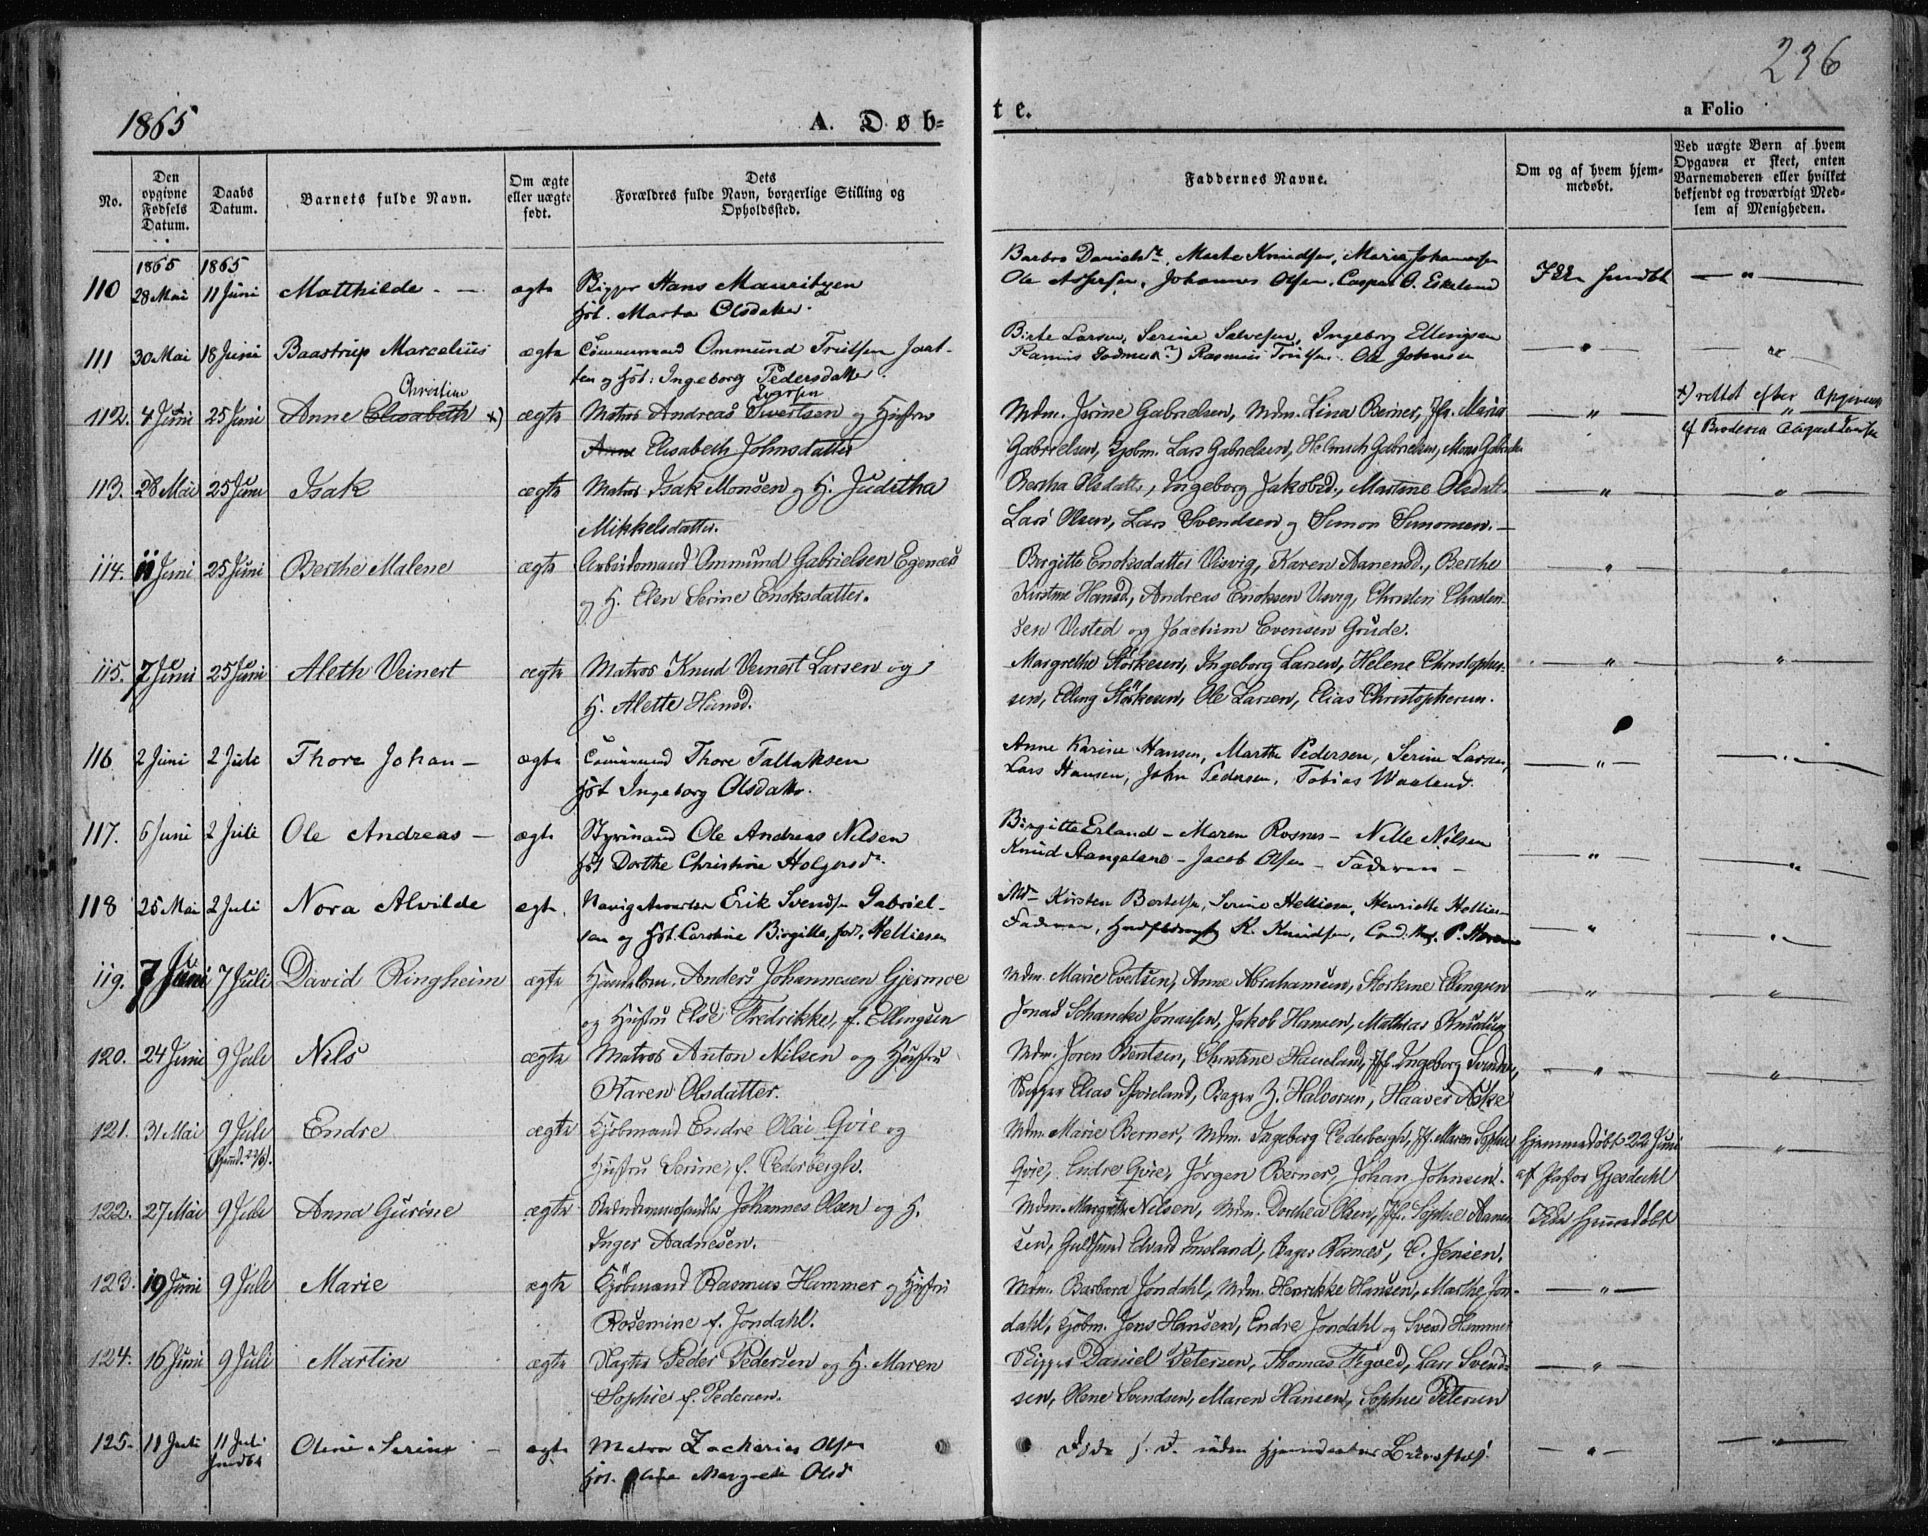 236
1865
A. Døb-
te.
a Folio
No.
Den opgivne Fødsels Datum.
Daabs Datum.
Barnets fulde Navn.
Om ægte eller uægte født.
Dets
Forældres fulde Navn, borgerlige Stilling og
Opholdssted.
Faddernes Navne.
Om og af hvem hjem-
medøbt.
Ved uægte Børn af hvem
Opgaven er skeet, enten
Barnemoderen eller hvilket
bekjendt og troværdigt Med-
lem af Menigheden.
1865 1865
110 28 Mai 11 Juni Matthilde - ægte Hans
Hst. Marta Olsdatter.
Marte Knudsen, Maria Johannesen
Ole Johannes Olsen, Caspar O. Eskeland
111 30 Mai 18 Juni Baastrup Marcelius ægte Ommund
og Hst: Ingeborg Pedersdatter.
Birte Larsen, Serine Salvesen, Ingeborg Ellingsen
Rasmus Ole Johnsen
Christine
112. 4 Juni 25 Juni Anne Elisabeth x) ægte Matros Andreas Sivertsen og Hustru
Iversen
Anne Elisabeth Johnsdatter
Mdm. Serine Gabrielsen, Mdm. Lina Berner, Jfr. Maria
Gabrielsen, Kjøbm. Lars Gabrielsen, Helmich Gabrielsen, Mons Gabrielsen
x) rettet efter Opgivende
af
113. 28 Mai 25 Juni Isak ægte Matros Isak Monsen og H. Juditha
Mikkelsdatter.
Bertha Olsdatter, Ingeborg Jakobsd., Martine Olsdatt.
Lars Olsen, Lars Svendsen og Simon Simonsen.
114. 11 Juni 25 Juni Berthe Malene ægte Arbeidsmand Ommund Gabrielsen Egenæs
og H. Elen Serine Enoksdatter.
Birgitte Enoksdatter Visvig, Karen Aanensd., Berthe
Kirstine Hansd, Andreas Enoksen Visvig, Christen Christen-
sen Vested og Joachim Evensen Grude.
115. 7 Juni 25 Juni Aleth Veinert ægte Matros Knud Veinert Larsen og
H. Alette Hansd.
Margrethe Störkesen, Ingeborg Larsen, Helene Christopher-
sen, Elling Störkesen, Ole Larsen, Elias Christophersen.
116 2 Juni 2 Juli Thore Johan - ægte Thore Tallaksen
Hst Ingeborg Olsdatter.
Anne Karine Hansen, Marthe Pedersen, Serine Larsen,
Lars Hansen, John Pedersen, Tobias Waaland.
117. 6 Juni 2 Juli Ole Andreas - ægte Styrmand Ole Andreas Nilsen
Hst Dorthe Christine Holgersd.
Birgitte Erland - Maren Rosnes - Nille Nilsen
Knud Aangeland - Jacob Olsen - Faderen -
118 25 Mai 2 Juli Nora Alvilde ægte. Erik Svendsen Gabriel-
sen og Hst. Caroline Birgitte, fød. Helliesen
Kirsten Bertelsen, Serine Helliesen, Henriette Helliesen
Faderen, K. Knudsen,
119. 7 Juni 7 Juli David Ringheim ægte Anders Johannesen Gjermoe
og Hustru Else Fredrikke, f. Ellingsen
Mdm. Marie Evertsen, Anne Abrahamsen, Storkine Ellingsen
Jonas Schancke Jonassen, Jakob Hansen, Mathias Knudsen
120. 24 Juni 9 Juli Nils ægte Matros Anton Nilsen og Hustru
Karen Olsdatter.
Mdm. Joren Bentsen, Christine Haueland, Jfr. Ingeborg
Skipper Elias Bager Z. Halvorsen, Haaver Aske
121. 31 Mai 9 Juli Endre ægte Kjöbmand Endre Olai Qvie og
Hustru Serine, f. Cederbergh.
Mdm. Marie Berner, Mdm. Ingeborg Cederbergh, Jf. Maren Sophie
Qvie, Endre Qvie, Jørgen Berner, Johan Johnsen.
Hjemmedøbt 22 Juni
af Pastor Gjesdahl
122. 27 Mai 9 Juli Anna Gurine ægte Johannes Olsen og H.
Inger Aadnesen.
Mdm. Margrethe Nilsen, Mdm. Dorthea Olsen, Jfr. Sophie Aanen-
sen, Guldsmd Edvard Imsland, Bager Rosnæs, C. Jensen.
Ikke hjemmedøbt
123. 19 Juni 9 Juli Marie ægte Kjöbmand Rasmus Hammer og Hustru
Rosemine f. Jondahl.
Mdm. Barbara Jondahl, Mdm. Henrikke Hansen, Marthe Jon-
dahl, Kjöbm. Jens Hansen, Endre Jondahl og Svend Hammer
124. 16 Juni 9 Juli Martin ægte Slagter Peder Pedersen og H. Maren
Sophie f. Pedersen.
Skipper Daniel Petersen, Thomas Figved, Lars Svend-
sen, Olene Svendsen, Maren Hansen, Sophie Petersen
125. 11 Juli 11 Juli Oline Serine - ægte Matros Zacharias Olsen
Hst. Oline Margrete Olsd